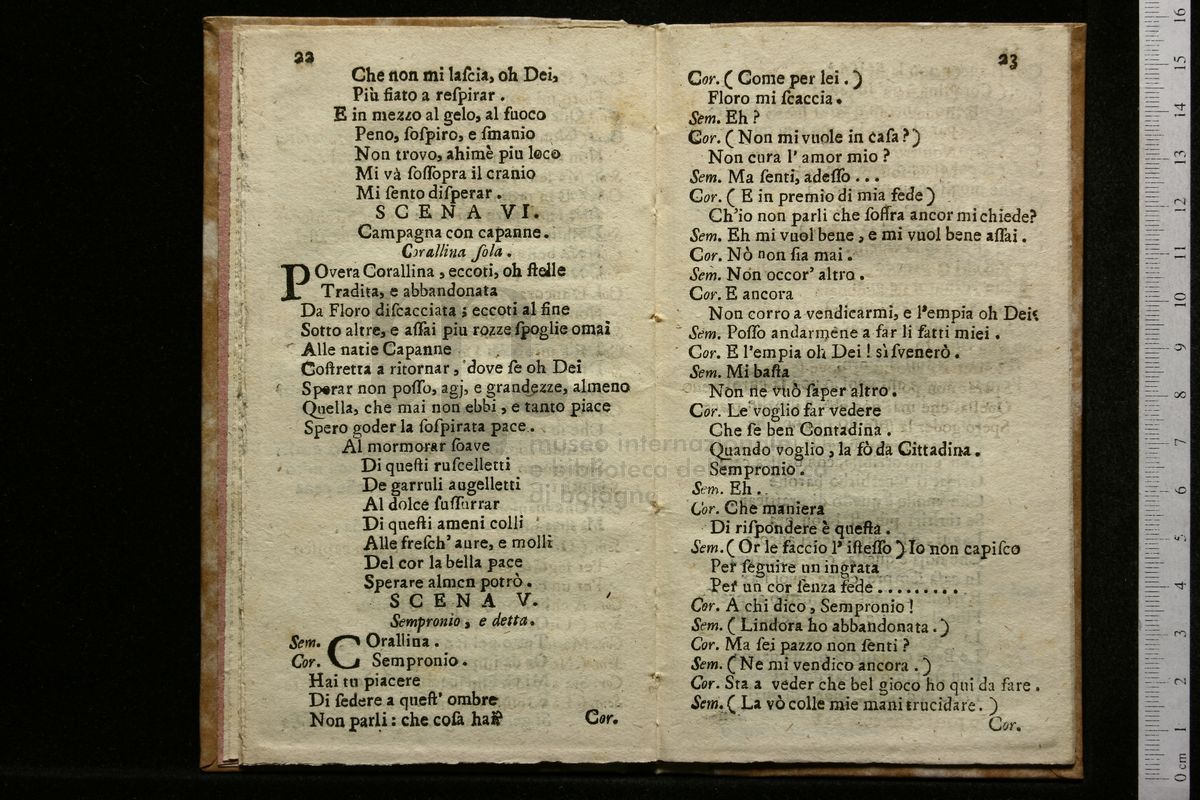 22
Che non mi laſcia, oh Dei,
Più fiato a reſpirar .
E in mezzo al gelo, al fuoco
Peno, ſoſpiro, e ſmanio
Non trovo, ahimè piu loco
Mi và ſoſſopra il cranio
Mi ſento diſperar .
SCENA VI.
Campagna con capanne .
Corallina ſola .
POvera Corallina , eccoti, oh ſtelle
Tradita, e abbandonata
Da Floro diſcacciata ; eccoti al fine
Sotto altre, e aſſai piu rozze ſpoglie omai
Alle natie Capanne
Coſtretta a ritornar , dove ſe oh Dei
Sperar non poſſo, agj, e grandezze, almeno
Quella, che mai non ebbi , e tanto piace
Spero goder la ſoſpirata pace .
Al mormorar ſoave
Di queſti ruſcelletti
De garruli augelletti
Al dolce ſuſſurrar
Di queſti ameni colli
Alle freſch' aure, e molli
Del cor la bella pace
Sperare almen potrò .
SCENA V.
Sempronio , e detta .
Sem. COrallina .
Cor. Sempronio .
Hai tu piacere
Di ſedere a queſt' ombre
Non parli : che coſa hai?
Cor.
23
Cor. ( Come per lei . )
Floro mi ſcaccia .
Sem. Eh ?
Cor. ( Non mi vuole in caſa ? )
Non cura l' amor mio ?
Sem. Ma ſenti, adeſſo . . .
Cor. ( E in premio di mia fede )
Ch'io non parli che ſoffra ancor mi chiede?
Sem. Eh mi vuol bene , e mi vuol bene aſſai .
Cor. Nò non ſia mai .
Sem. Non occor' altro .
Cor. E ancora
Non corro a vendicarmi, e l'empia oh Dei
Sem. Poſſo andarmene a far li fatti miei .
Cor. E l'empia oh Dei ! sì ſvenerò .
Sem. Mi baſta
Non ne vuò ſaper altro .
Cor. Le voglio far vedere
Che ſe ben Contadina .
Quando voglio , la fò da Cittadina .
Sempronio .
Sem. Eh .
Cor. Che maniera
Di riſpondere è queſta .
Sem. ( Or le faccio l' iſteſſo ) Io non capiſco
Per ſeguire un ingrata
Per un cor ſenza fede . . . . . . . . .
Cor. A chi dico , Sempronio !
Sem. ( Lindora ho abbandonata . )
Cor. Ma ſei pazzo non ſenti ?
Sem. ( Ne mi vendico ancora . )
Cor. Sta a veder che bel gioco ho qui da fare .
Sem. ( La vò colle mie mani trucidare . )
Cor.
museo internazionale
e biblioteca della
di bologna
0 cm 1 2 3 4 5 6 7 8 9 10 11 12 13 14 15 16